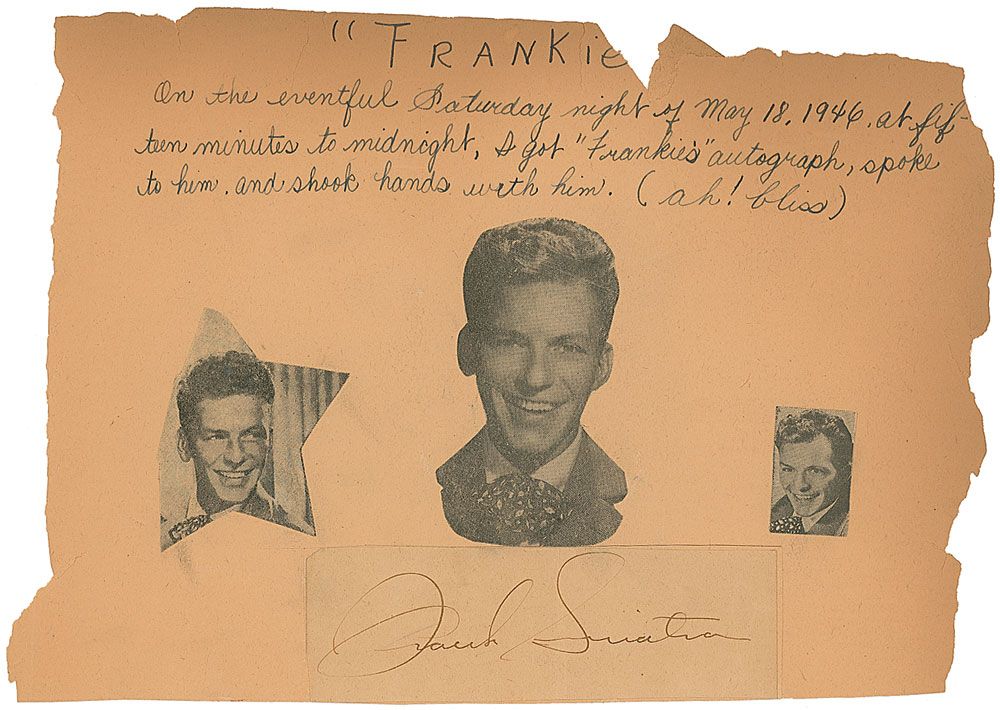 "FRANKie
On the eventful Saturday night of May 18, 1946, at fif-
teen minutes to midnight, I got "Frankie's" autograph, spoke
to him, and shook hands with him. (ah! bliss)
Frank Sinatra